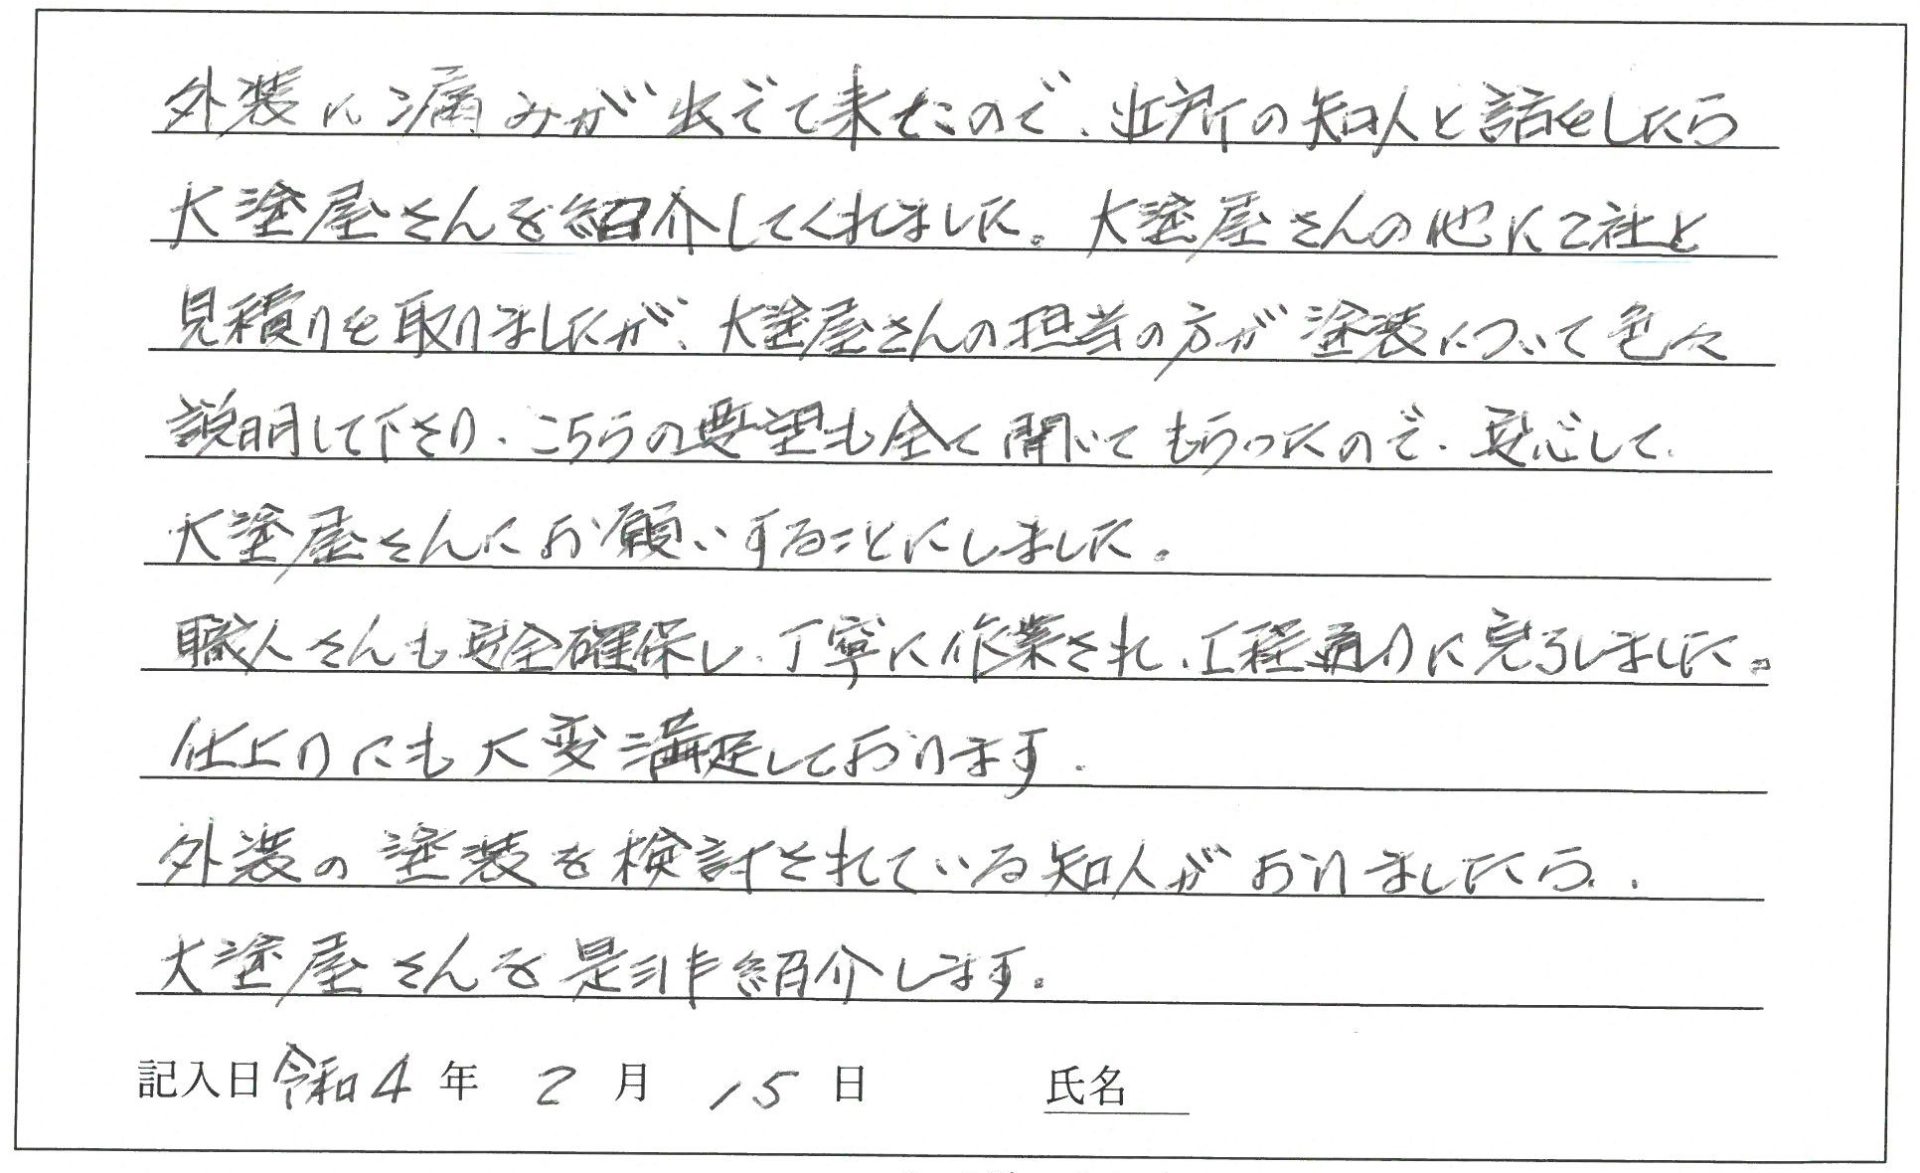 外装に痛みが出でて来たので、近所の知人と話をしたら
大塗屋さんを紹介してくれました。大塗屋さんの他に2社と
見積りを取りましたが、大塗屋さんの担当の方が塗装について色々
説明して下さり、こちらの要望も全て聞いてもらったので、安心して
大塗屋さんにお願いすることにしました。
職人さんも安全確保し、丁寧に作業され、工程通りに完了しました。
仕上りにも大変満足しております。
外装の塗装を検討されている知人がおりましたら、
大塗屋さんを是非紹介します。
記入日 令和4年 2月 15日 氏名